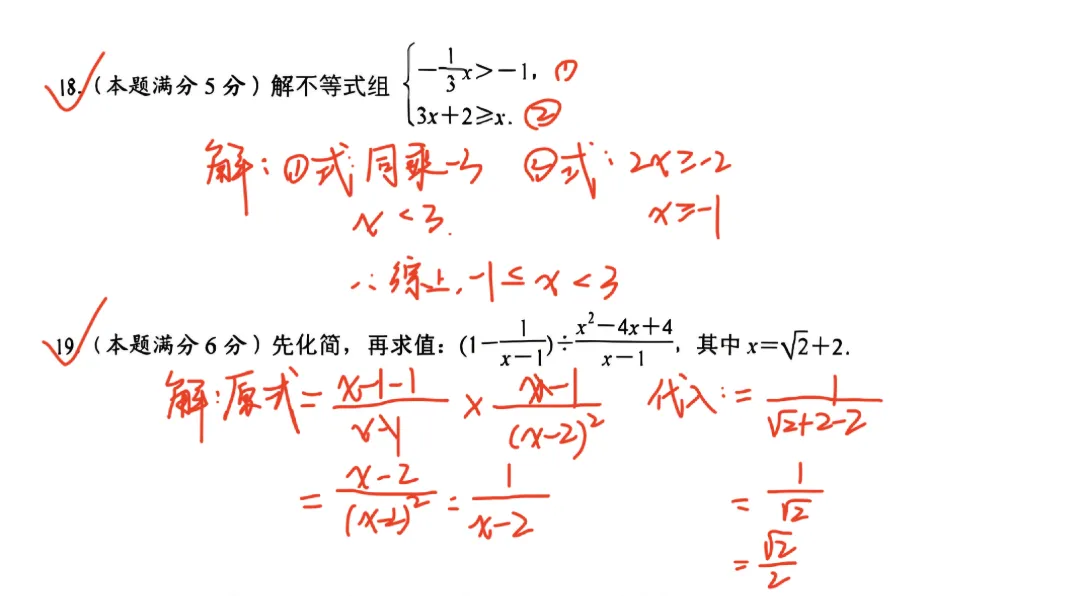 18.(本题满分5分)解不等式组 { -1/3x>-1, ①
3x+2≥x. ②
解:①式:同乘-3 ②式:2x≥-2
x<3. x≥-1
∴综上,-1≤x<3
19.(本题满分6分)先化简,再求值:(1-1/(x-1))÷(x²-4x+4)/(x-1),其中x=√2+2.
解:原式=(x-1-1)/(x-1)×(x-1)/(x-2)² 代入:=1/(√2+2-2)
=(x-2)/(x-2)²=1/(x-2) =1/√2
=√2/2